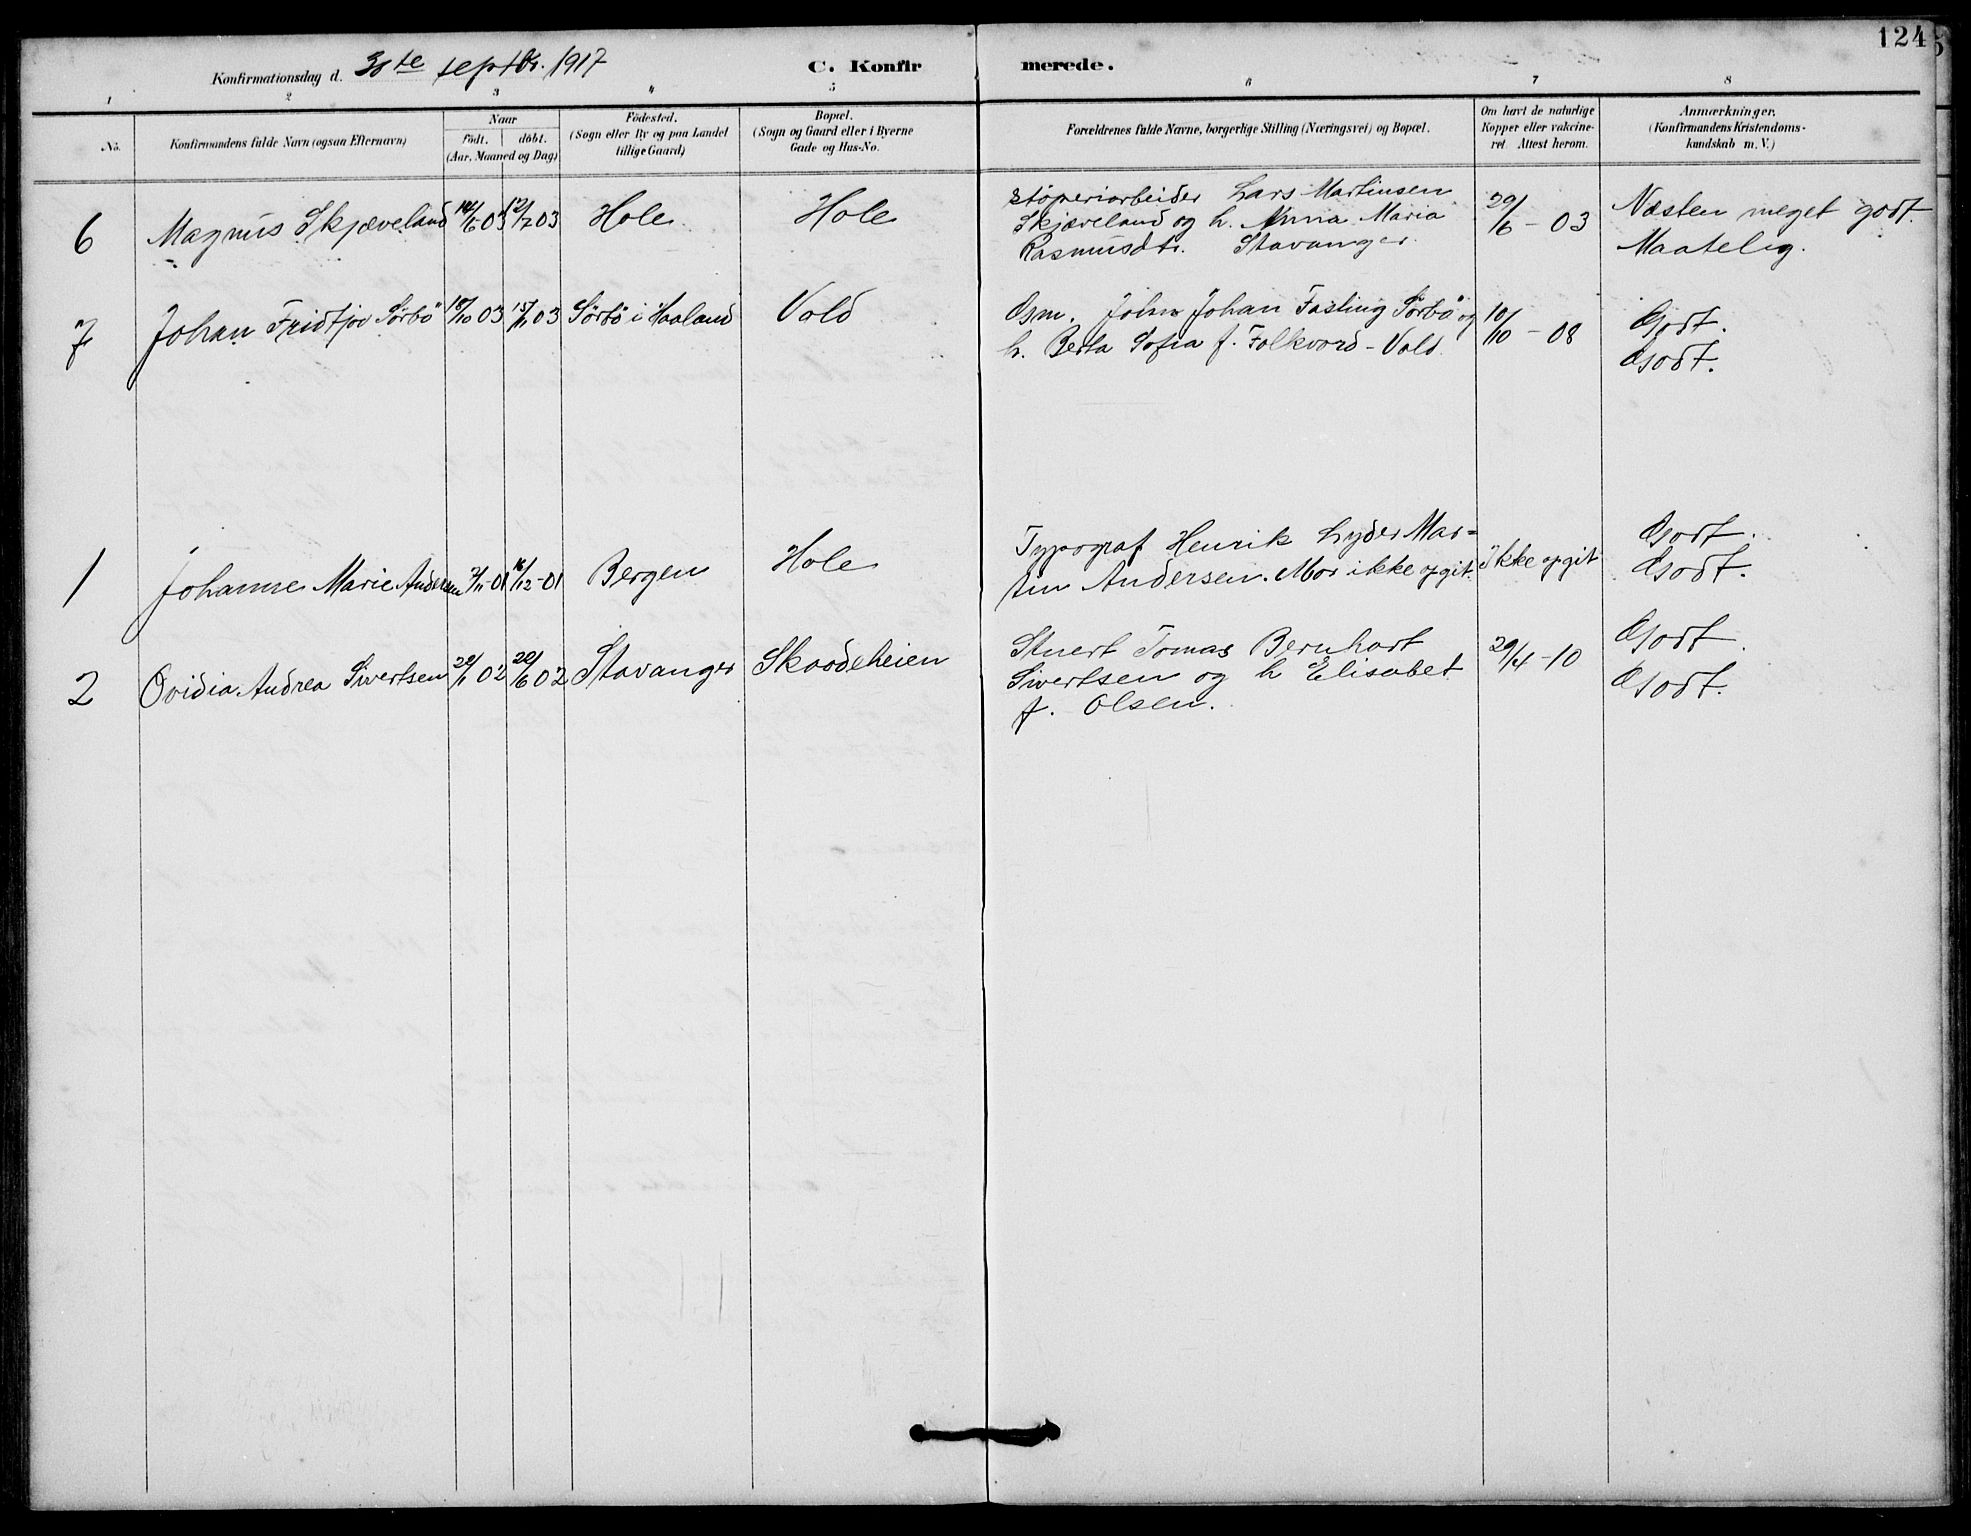 124
Konfirmationsdag d. 30te septbr. 1917
C. Konfirmerede.
1 2 3 4 5 6 7 8
No.
Konfirmandens fulde Navn (ogsaa Efternavn)
Naar
födt. döbt.
(Aar, Maaned og Dag)
Födested.
(Sogn eller By og paa Landet
tillige Gaard)
Bopæl.
(Sogn og Gaard eller i Byerne
Gade og Hus-No.
Forældrenes fulde Navne, borgerlige Stilling (Næringsvei) og Bopæl.
Om havt de naturlige
Kopper eller vakcine-
ret. Attest herom.
Anmærkninger.
(Konfirmandens Kristendoms-
kundskab m. V.)
6 Magnus Skjæveland 14/6 03 12/7 03 Hole Hole
Stöperiarbeider Lars Martinsen
Skjæveland og h. Anna Maria
Rasmusdtr. Stavanger.
29/6 - 03
Næsten meget godt.
Maatelig.
7 Johan Fridtjov Sörbö 18/10 03 15/11 03 Sörbö i Haaland Vold
Gsm. Johan Fasting Sörbö og
h. Berta Sofia f. Folkvord - Vold
10/10 - 08
Godt.
Godt.
1 Johanne Marie Andersen 7/11-01 16/12-01 Bergen Hole
Typograf Henrik Lyder Mar=
tin Andersen. Mor ikke opgit.
Ikke opgit
Godt.
Godt.
2 Ovidia Andrea Sivertsen 20/1 02 20/6 02 Stavanger Skaadeheien
Stuert Tomas Bernhart
Sivertsen og h Elisabet
f. Olsen.
29/4-10
Godt.
Godt.